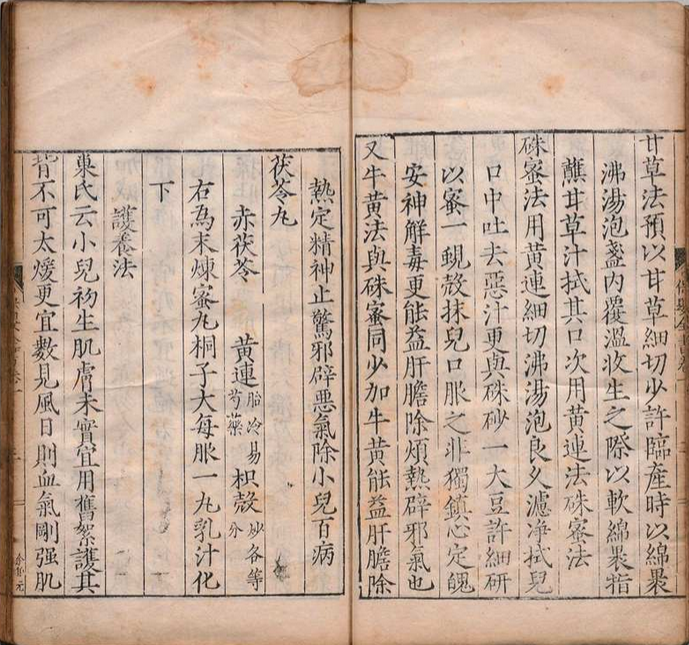 甘草法預以甘草細切少許臨產時以綿裹
沸湯泡盞內覆溫收生之際以軟綿裹指
蘸甘草汁拭其口次用黃連法硃蜜法
硃蜜法用黃連細切沸湯泡良久濾净拭兒
口中吐去惡汁更與硃砂一大豆許細研
以蜜一蜆殼抹兒口服之非獨鎮心定魄
安神解毒更能益肝膽除煩熱辟邪氣也
又牛黃法與硃蜜同少加牛黃能益肝膽除
熱定精神止驚邪辟惡氣除小兒百病
茯苓丸
赤茯苓 黃連胎冷易芍藥 枳殼炒各等分
右為末煉蜜丸桐子大每服一丸乳汁化
下
護養法
巢氏云小兒初生肌膚未實宜用舊絮護其
背不可太煖更宜數見風日則血氣剛强肌